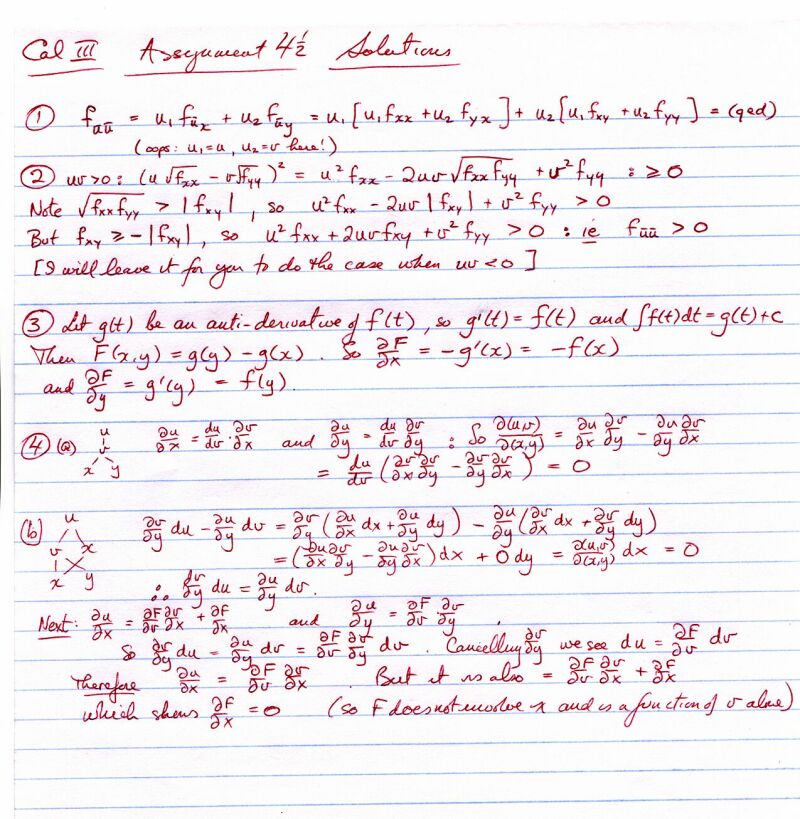 Cal III Assignment 4½ Solutions
① f_ūū = u₁ f_ūx + u₂ f_ūy = u₁ [u₁ f_xx + u₂ f_yx] + u₂ [u₁ f_xy + u₂ f_yy] = (qed)
(oops: u₁ = u, u₂ = v here!)
② uv > 0 : (u √f_xx − v √f_yy)² = u² f_xx − 2uv √(f_xx f_yy) + v² f_yy : ≥ 0
Note √(f_xx f_yy) > |f_xy| , so u² f_xx − 2uv |f_xy| + v² f_yy > 0
But f_xy ≥ −|f_xy| , so u² f_xx + 2uv f_xy + v² f_yy > 0 : ie f_ūū > 0
[I will leave it for you to do the case when uv < 0 ]
③ Let g(t) be an anti-derivative of f(t) , so g'(t) = f(t) and ∫f(t)dt = g(t) + c
Then F(x,y) = g(y) − g(x) . So ∂F/∂x = −g'(x) = −f(x)
and ∂F/∂y = g'(y) = f(y).
④ (a) u v x y ∂u/∂x = du/dv · ∂v/∂x and ∂u/∂y = du/dv ∂v/∂y : So ∂(u,v)/∂(x,y) = ∂u/∂x ∂v/∂y − ∂u/∂y ∂v/∂x
= du/dv (∂v/∂x ∂v/∂y − ∂v/∂y ∂v/∂x) = 0
(b) u v x x y ∂v/∂y du − ∂u/∂y dv = ∂v/∂y (∂u/∂x dx + ∂u/∂y dy) − ∂u/∂y (∂v/∂x dx + ∂v/∂y dy)
= (∂u/∂x ∂v/∂y − ∂u/∂y ∂v/∂x) dx + 0 dy = ∂(u,v)/∂(x,y) dx = 0
∴ ∂v/∂y du = ∂u/∂y dv.
Next: ∂u/∂x = ∂F/∂v ∂v/∂x + ∂F/∂x and ∂u/∂y = ∂F/∂v · ∂v/∂y .
So ∂v/∂y du = ∂u/∂y dv = ∂F/∂v ∂v/∂y dv . Cancelling ∂v/∂y we see du = ∂F/∂v dv
Therefore ∂u/∂x = ∂F/∂v ∂v/∂x . But it is also = ∂F/∂v ∂v/∂x + ∂F/∂x
which shews ∂F/∂x = 0 (so F does not involve x and is a function of v alone)